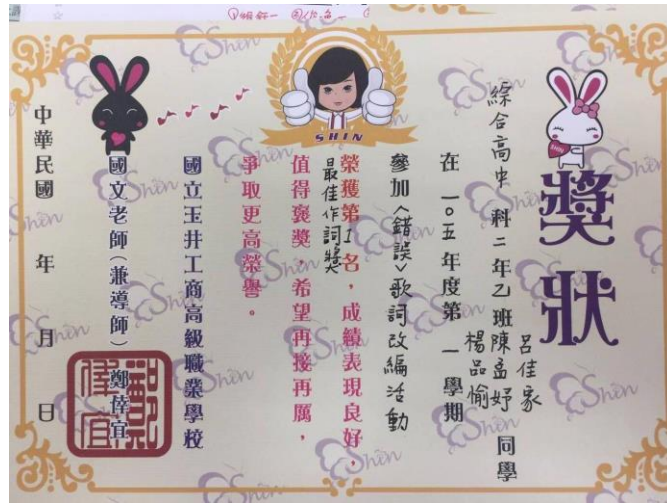 獎狀
綜合高中科二年乙班陳孟妤 呂佳家 楊品愉 同學
在一〇五年度第一學期
參加〈錯誤〉歌詞改編活動
榮獲第1名，成績表現良好，
最佳作詞獎
值得褒獎，希望再接再厲，
爭取更高榮譽。
國立玉井工商高級職業學校
國文老師（兼導師） 鄭倖宜
中華民國 年 月 日
SHIN
Shin